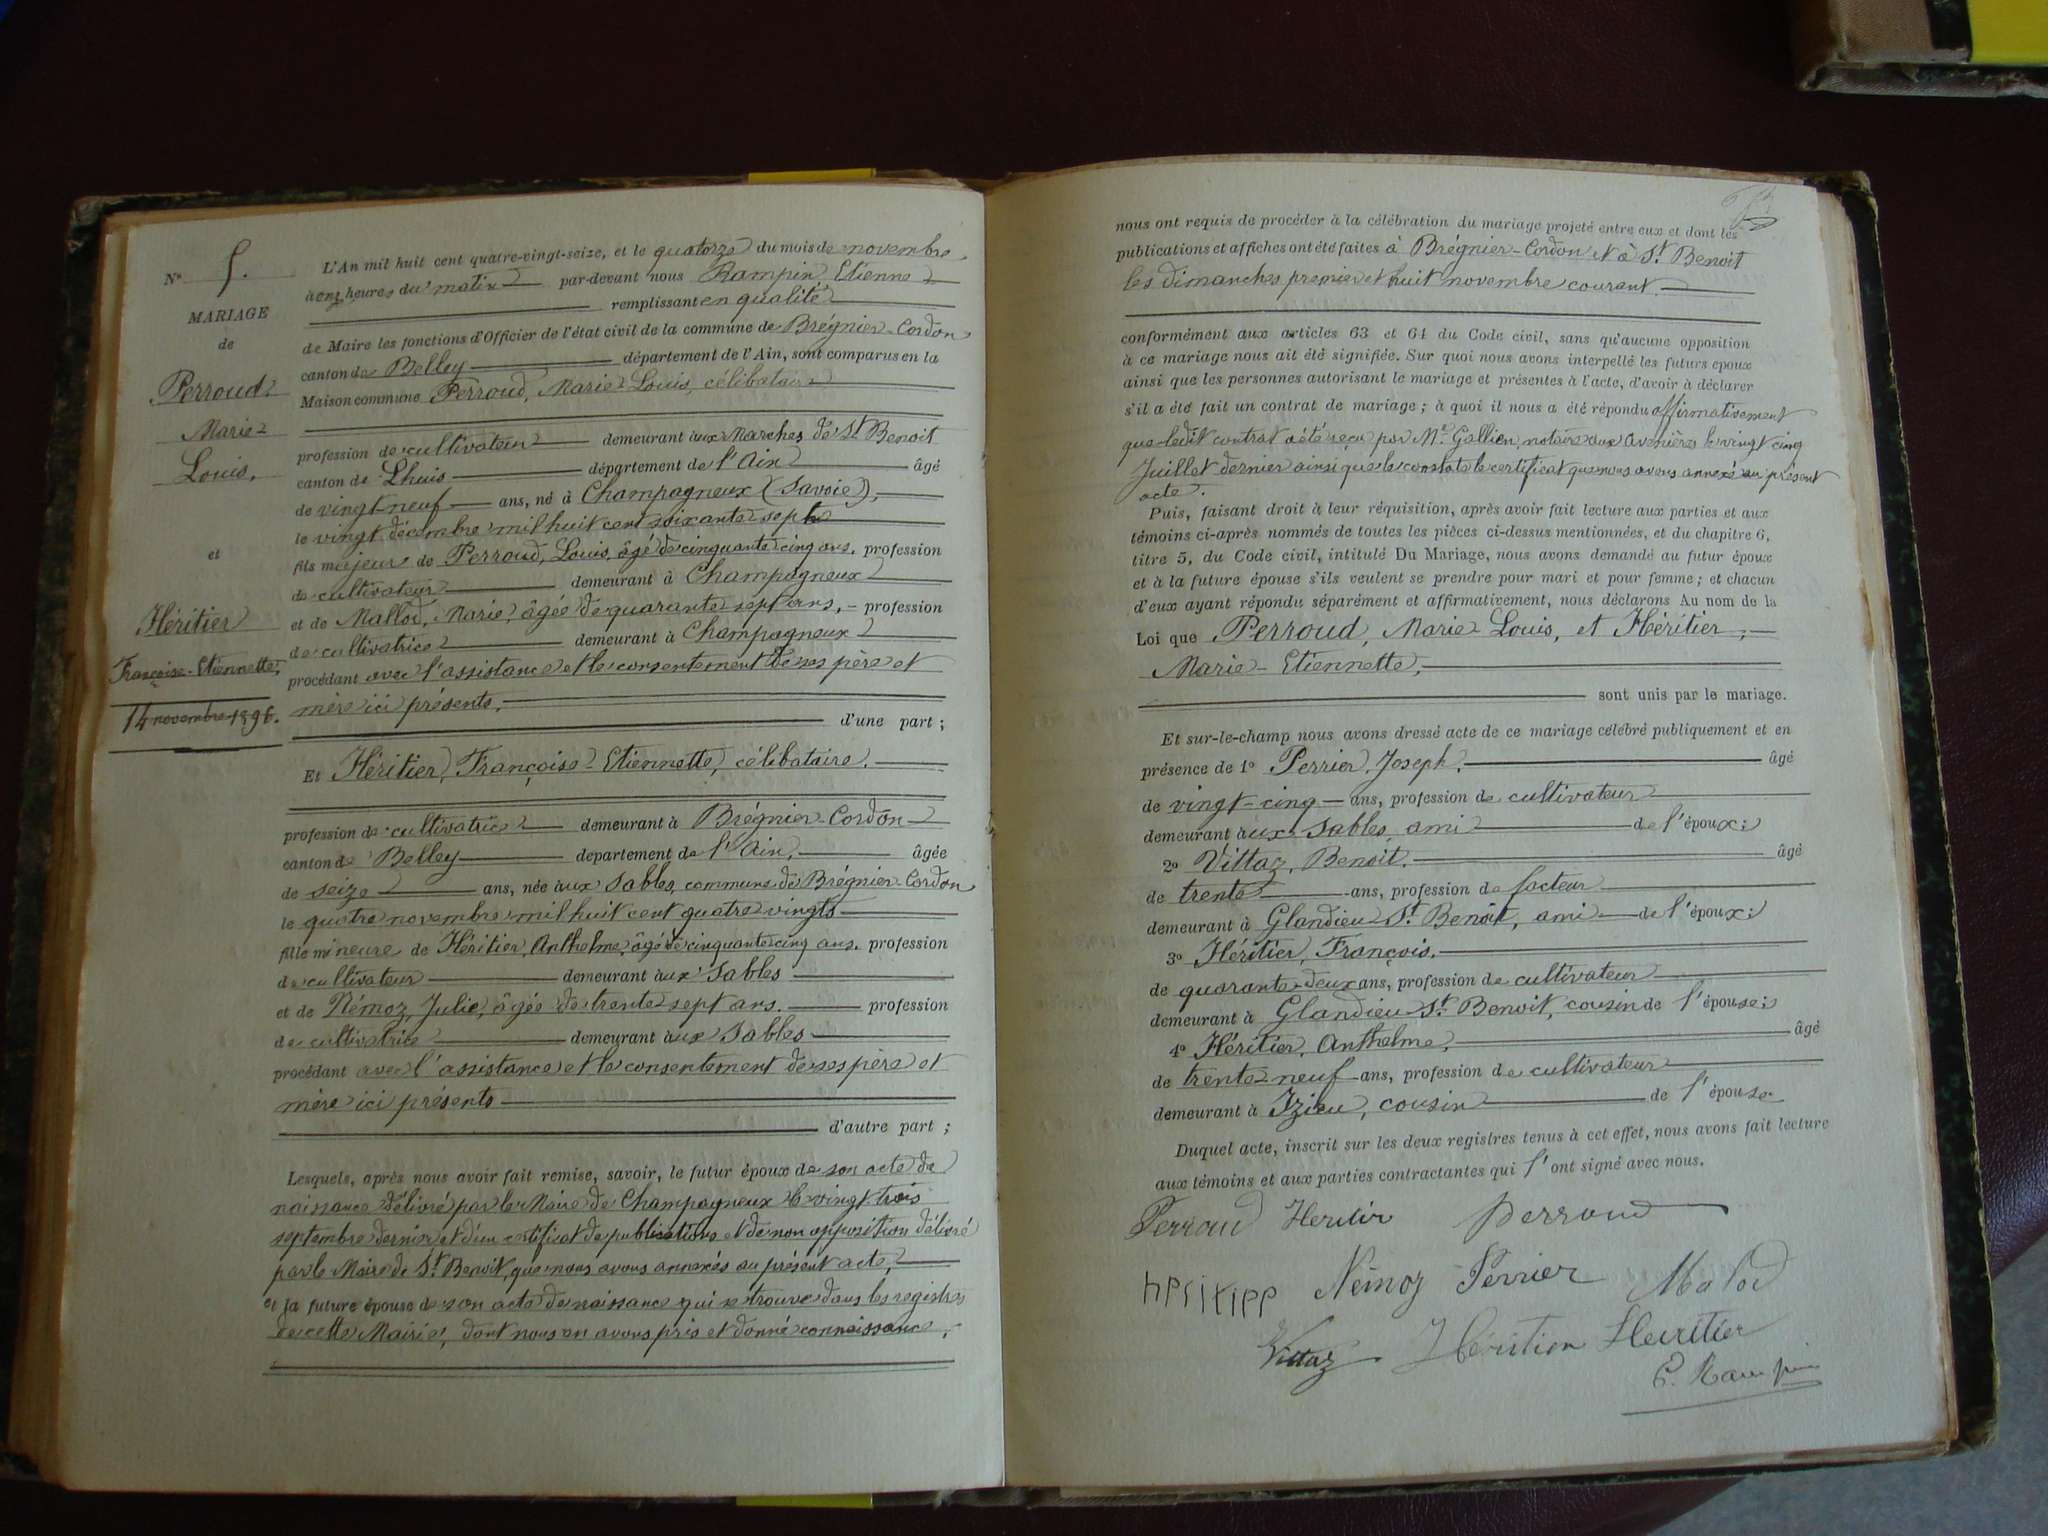 N° 5.
MARIAGE
de
Perroud
Marie
Louis,
et
Héritier
Françoise-Etiennette,
14 novembre 1896.
L'An mil huit cent quatre-vingt-seize, et le quatorze du mois de novembre
à onze heures du matin par-devant nous Rampin, Etienne
remplissant en qualité
de Maire les fonctions d'Officier de l'état civil de la commune de Brégnier-Cordon
canton de Belley département de l'Ain, sont comparus en la
Maison commune Perroud, Marie Louis, célibataire
profession de cultivateur demeurant aux Marches de St Benoit
canton de Lhuis département de l'Ain âgé
de vingt-neuf ans, né à Champagneux (Savoie),
le vingt décembre mil huit cent soixante sept
fils majeur de Perroud, Louis, âgé de cinquante cinq ans, profession
de cultivateur demeurant à Champagneux
et de Mallod, Marie, âgée de quarante sept ans, profession
de cultivatrice demeurant à Champagneux
procédant avec l'assistance et le consentement de ses père et
mère ici présents.
d'une part ;
Et Héritier, Françoise-Etiennette, célibataire.
profession de cultivatrice demeurant à Brégnier-Cordon
canton de Belley departement de l'Ain, âgée
de seize ans, née aux Sables, commune de Brégnier-Cordon
le quatre novembre mil huit cent quatre vingts
fille mineure de Héritier, Anthelme, âgé de cinquante cinq ans, profession
de cultivateur demeurant aux Sables
et de Némoz, Julie, âgée de trente sept ans. profession
de cultivatrice demeurant aux Sables
procédant avec l'assistance et le consentement de ses père et
mère ici présents
d'autre part ;
Lesquels, après nous avoir fait remise, savoir, le futur époux de son acte de
naissance délivré par le Maire de Champagneux le vingt trois
septembre dernier et d'un certificat de publications et de non opposition délivré
par le Maire de St Benoit, que nous avons annexés au présent acte,
et la future épouse de son acte de naissance qui se trouve dans les registres
de cette Mairie, dont nous en avons pris et donné connaissance,
nous ont requis de procéder à la célébration du mariage projeté entre eux et dont les
publications et affiches ont été faites à Brégnier-Cordon et à St Benoit
les dimanches premier et huit novembre courant.
conformément aux articles 63 et 64 du Code civil, sans qu'aucune opposition
à ce mariage nous ait été signifiée. Sur quoi nous avons interpellé les futurs epoux
ainsi que les personnes autorisant le mariage et présentes à l'acte, d'avoir à déclarer
s'il a été fait un contrat de mariage ; à quoi il nous a été répondu affirmativement
que ledit contrat a été reçu par Me Gallien, notaire aux Avenières le vingt cinq
Juillet dernier ainsi que le constate le certificat que nous avons annexé au présent
acte.
Puis, faisant droit à leur réquisition, après avoir fait lecture aux parties et aux
témoins ci-après nommés de toutes les pièces ci-dessus mentionnées, et du chapitre 6,
titre 5, du Code civil, intitulé Du Mariage, nous avons demandé au futur époux
et à la future épouse s'ils veulent se prendre pour mari et pour femme ; et chacun
d'eux ayant répondu séparément et affirmativement, nous déclarons Au nom de la
Loi que Perroud, Marie Louis, et Héritier,
Marie-Etiennette,
sont unis par le mariage.
Et sur-le-champ nous avons dressé acte de ce mariage célébré publiquement et en
présence de 1° Perrier, Joseph, âgé
de vingt-cinq ans, profession de cultivateur
demeurant aux Sables, ami de l'époux;
2° Vittaz, Benoit. âgé
de trente ans, profession de facteur
demeurant à Glandieu St Benoit, ami de l'époux;
3° Héritier, François.
de quarante-deux ans, profession de cultivateur
demeurant à Glandieu St Benoit, cousin de l'épouse;
4° Héritier, Anthelme, âgé
de trente-neuf ans, profession de cultivateur
demeurant à Izieu, cousin de l'épouse
Duquel acte, inscrit sur les deux registres tenus à cet effet, nous avons fait lecture
aux témoins et aux parties contractantes qui l'ont signé avec nous.
Perroud Heritier Perroud
Némoz Perrier Malod
Vittaz Héritier Heritier
E. Rampin